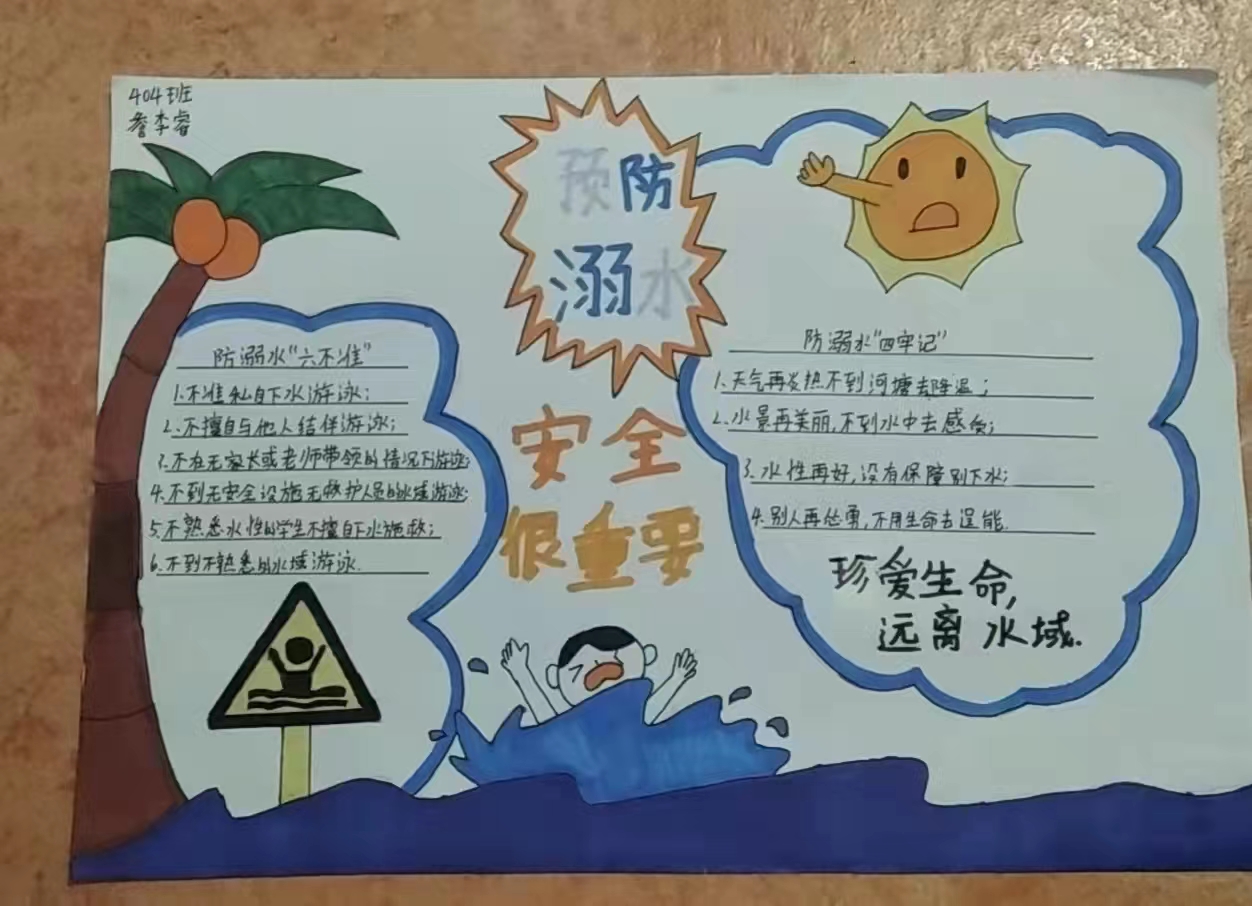 404班
詹李睿
预防
溺水
安全
很重要
防溺水“六不准”
1.不准私自下水游泳;
2.不擅自与他人结伴游泳;
3.不在无家长或老师带领的情况下游泳;
4.不到无安全设施无救护人员的水域游泳;
5.不熟悉水性的学生不擅自下水施救;
6.不到不熟悉的水域游泳.
防溺水“四牢记”
1.天气再炎热不到河塘去降温;
2.水景再美丽,不到水中去感负;
3.水性再好,没有保障别下水;
4.别人再怂勇,不用生命去逞能.
珍爱生命,
远离水域.